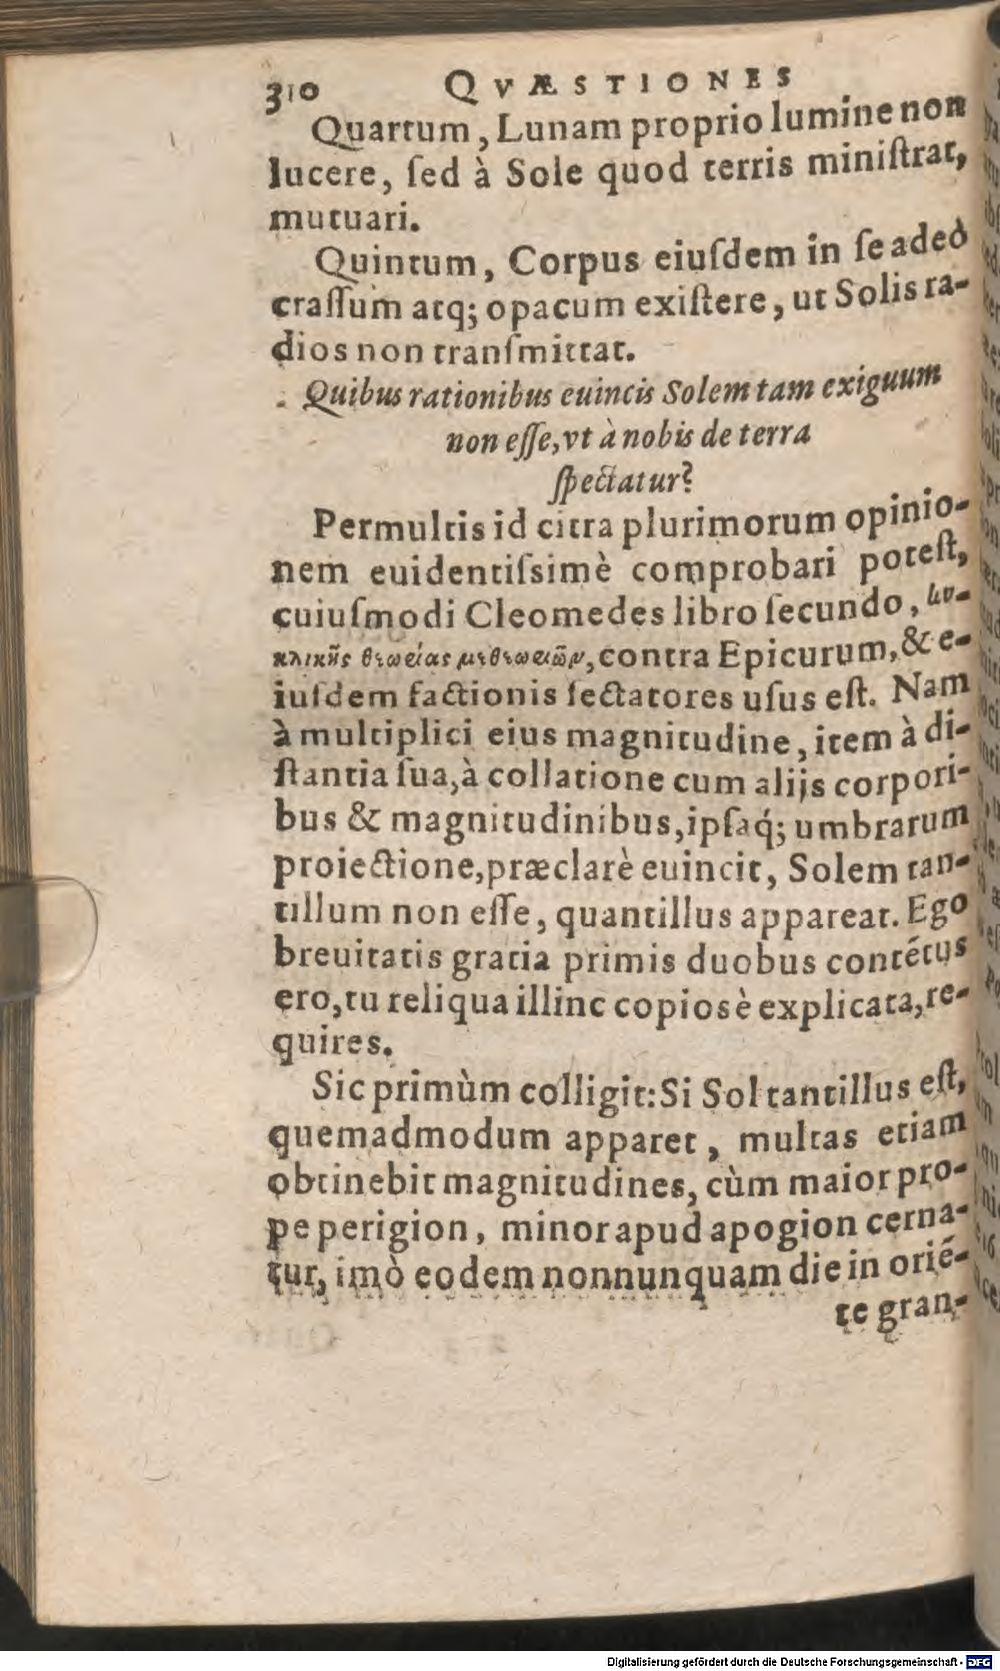 310 QVÆSTIONES
Quartum, Lunam proprio lumine non
lucere, ſed à Sole quod terris miniſtrat,
mutuari.
Quintum, Corpus eiuſdem in ſe adeò
craſſum atq; opacum exiſtere, ut Solis ra-
dios non tranſmittat.
Quibus rationibus euincis Solem tam exiguum
non eſſe, vt à nobis de terra
ſpectatur?
Permultis id citra plurimorum opinio-
nem euidentiſsimè comprobari poteſt,
cuiuſmodi Cleomedes libro ſecundo, κυ-
κλικῆς θεωρείας μετεώρων, contra Epicurum, & e-
iuſdem factionis ſectatores uſus eſt. Nam
à multiplici eius magnitudine, item à di-
ſtantia ſua, à collatione cum alijs corpori-
bus & magnitudinibus, ipſaq́; umbrarum
proiectione, præclarè euincit, Solem tan-
tillum non eſſe, quantillus appareat. Ego
breuitatis gratia primis duobus contétus
ero, tu reliqua illinc copiosè explicata, re-
quires.
Sic primùm colligit: Si Sol tantillus eſt,
quemadmodum apparet, multas etiam
obtinebit magnitudines, cùm maior pro-
pe perigion, minor apud apogion cerna-
tur, imò eodem nonnunquam die in orié-
te gran-
Digitalisierung gefördert durch die Deutsche Forschungsgemeinschaft - DFG